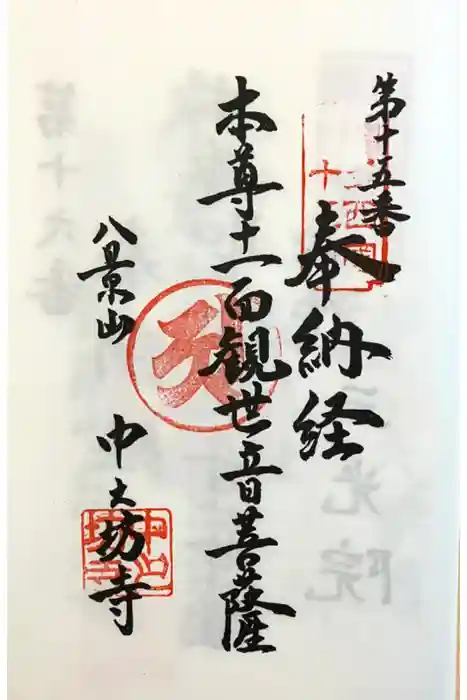 第十五番
奉納経
本尊十一面観世音菩薩
八景山
中大坊寺